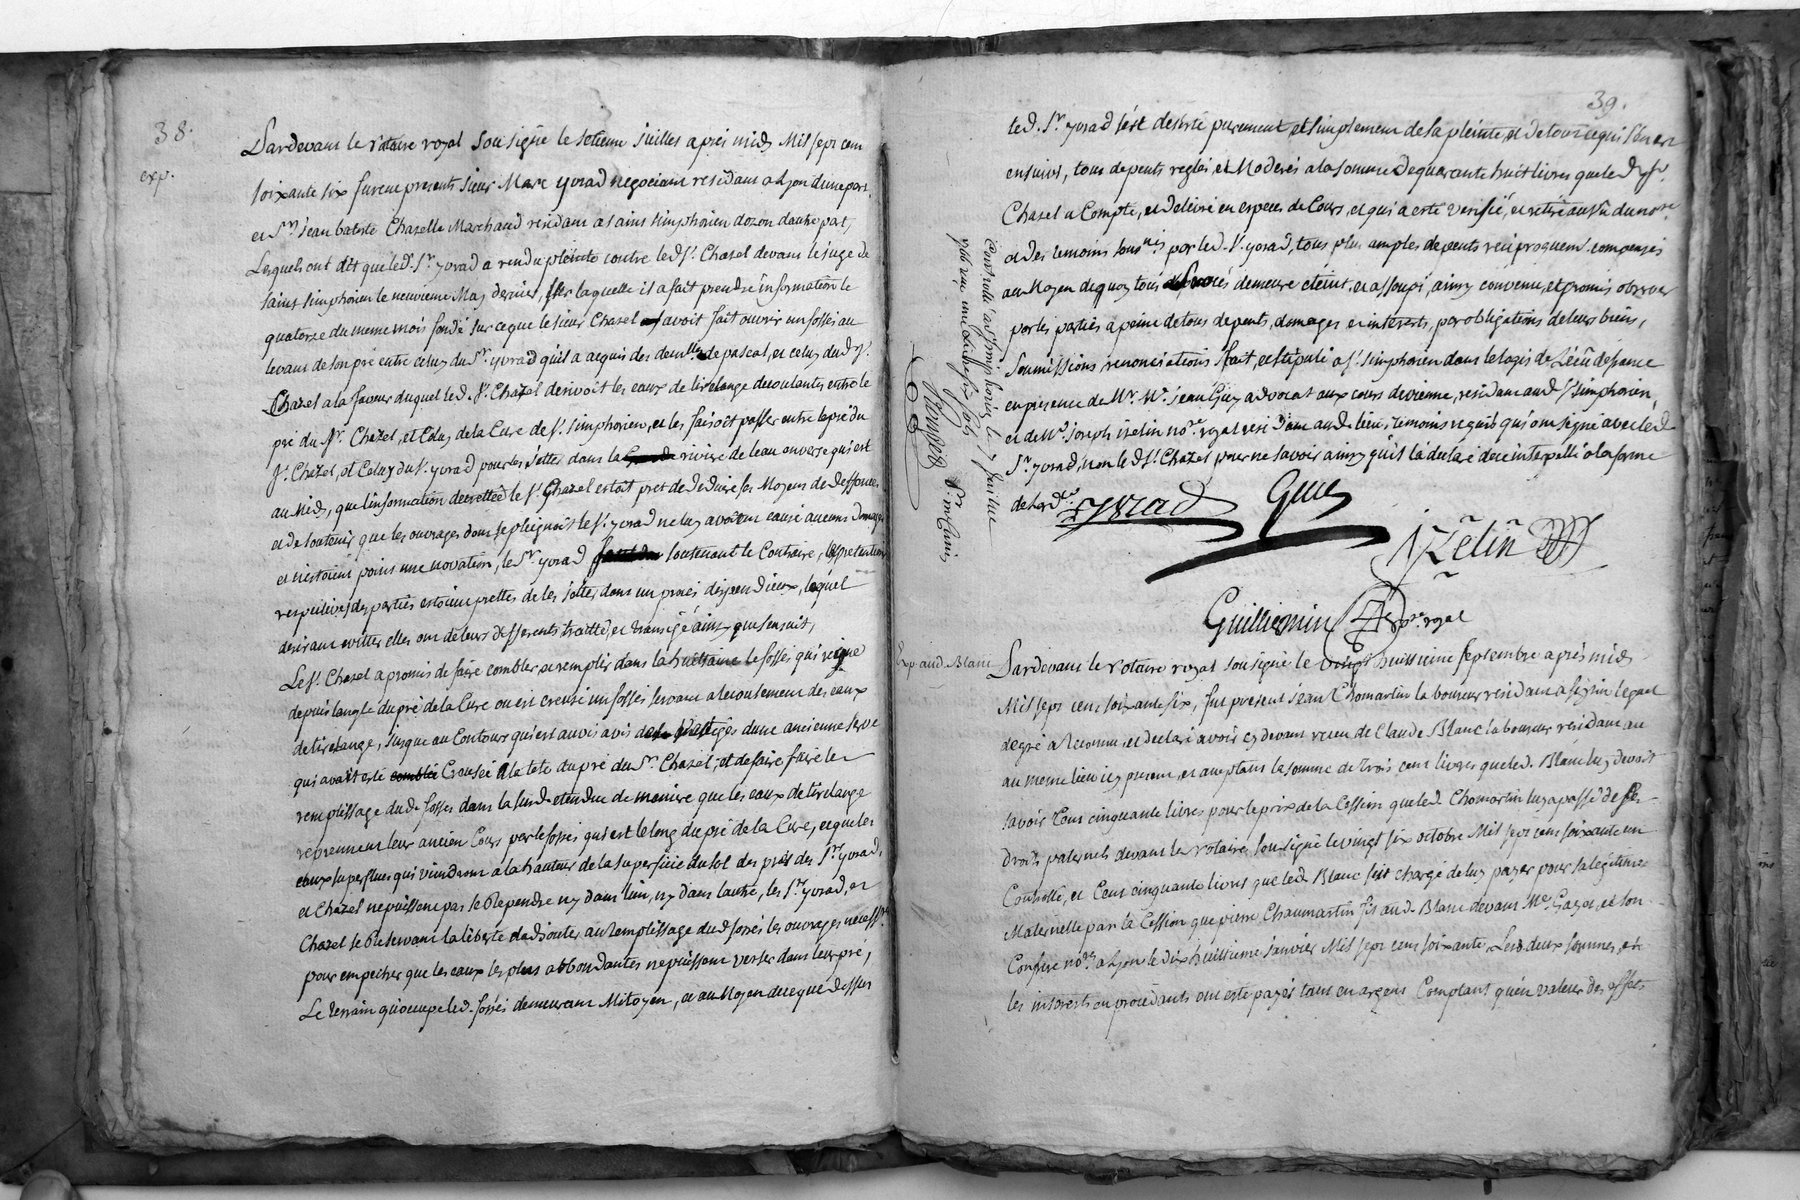 38.
exp.
Pardevant le notaire royal soussigné le setieme juillet après midy Mil sept cen
soixante six furent presents sieur Marc yvrad negociant residant a Lyon dune part,
et Sr. jean batiste Chazelle Marchand residant a saint simphorien dozon dautre part,
Lesquels ont dit que led. Sr. yvrad a rendu pleinte contre led Sr. Chazel devant le juge de
saint simphorien le neuvieme May dernier, sur laquelle il a fait prendre information le
quatorze du meme mois fondé sur ce que le sieur Chazel avoit fait ouvrir un fossés au
levant de son pré entre celuy du Sr. yvrad quil a acquis des dem.lles de pascal, et celuy dud. Sr.
Chazel a la faveur duquel led. Sr. Chazel derivoit les eaux de lirelange decoulantes entre le
pré du Sr. Chazel, et Celuy de la Cure de St. simphorien, et les faisoit passer entre le pré du
Sr. Chazel, et Celuy du Sr. yvrad pour les jetter dans la riviere de leau onverse qui est
au Midy, que linformation decrettée le Sr. Chazel estoit pret de deduire ses Moyens de deffences
et de soutenir que les ouvrages dont se pleignoit le Sr. yvrad ne luy avoient causé aucuns domages
et nestoient point une novation, le Sr. yvrad soutenant le Contraire, les pretentions
respectives des parties estoient prettes de les jetter dans un procès dispendieux, lequel
desirant eviter elles ont de leurs differents traitté, et transigé ainsy que sensuit,
Le Sr. Chazel a promis de faire combler et remplir dans la huitaine le fossés qui reigne
depuis langle du pré de la Cure ou est creusé un fossés servant a lecoulement des eaux
de lirelange, jusque au Contour qui est au vis avis des vestiges dune ancienne serve
qui avoit esté Creusée a la tete du pré du Sr. Chazel, et de faire faire le
remplissage dud. fossés dans la susd. etendue de maniere que les eaux de lirelange
reprennent leur ancien Cours par le fossés qui est le long du pré de la Cure, et que les
eaux superflues qui viendront a la hauteur de la superficie du sol des prés des Srs. yvrad,
et Chazel ne puissent pas se Rependre ny dans lun, ny dans lautre, les Srs. yvrad, et
Chazel se Reservant la liberté dadjouter au remplissage dud fossés les ouvrages necess.res
pour empecher que les eaux les plus abbondantes ne puissent verser dans leur pré,
Le terrain quoccupe led. fossés demeurant Mitoyen, et au Moyen de ce que dessus
39.
led. Sr. yvrad sest desisté purement et simplement de sa pleinte, et de tout ce qui sen est
ensuivi, tous depents reglés et Moderés a la somme de quarante huit livres que led Sr.
Chazel a Compté, et delivré en especes de Cours, et qui a esté verifié, et retiré au vu du no.re
et des temoins sous.nés par led. Sr. yvrad, tous plus amples depents reciproquem.t compensés
au Moyen de quoy tous procès demeure eteint, et assoupi, ainsy convenu, et promis observer
par les parties a peine de tous depents, domages et interests, par obligations de leurs biens,
soumissions renonciations fait, et stipulé a St. simphorien dans le logis de lécu de france
en presence de Mr. Me. jean Guy advocat aux cours de vienne, residant aud St. simphorien,
et de Me. joseph izelin no.re royal residant aud. lieu, temoins requis qui ont signé avec led
Sr. yvrad, non led Sr. Chazel pour ne savoir ainsy quil la declaré de ce interpellé a la forme
de lord.ce
yvrad Guy
izelin
Guillermin no.re royal
Controllé a st simphorien le 7 juillet
1766 reçu
Exp. aud. Blanc
Pardevant le notaire royal soussigné le vingt huitieme septembre après midy
Mil sept cent soixante six, fut present jean Chomartin laboureur residant a seyssin lequel
de gré a Reconnu, et declaré avoir cy devant receu de Claude Blanc laboureur residant au
meme lieu icy present, et acceptant la somme de trois cent livres que led. Blanc luy devoit
savoir Cent cinquante livres pour le prix de la Cession que led Chomartin luy a passé de ses
droits paternels devant le notaire soussigné le vingt six octobre Mil sept cent soixante un
Controllé, et Cent cinquante livres que led Blanc sest chargé de luy payer pour sa legitime
Maternelle par la Cession que pierre Chaumartin fit aud. Blanc devant Me. Gayot, et son
Confrere no.res a Lyon le dix huitieme janvier Mil sept cent soixante, Lesd deux sommes, et
les interests en procedants ont esté payés tant en argent Comptant quen valeur des effets